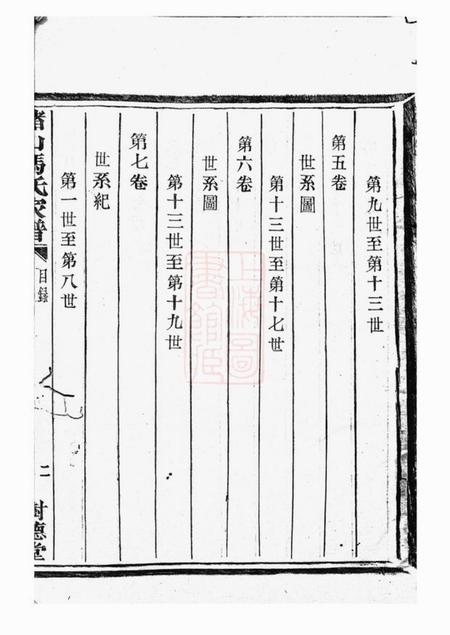 第九世至第十三世
第五卷
世系圖
第十三世至第十七世
第六卷
世系圖
第十三世至第十九世
第七卷
世系紀
第一世至第八世
山馬氏家譜
目錄
二
樹德堂
上海圖書館藏